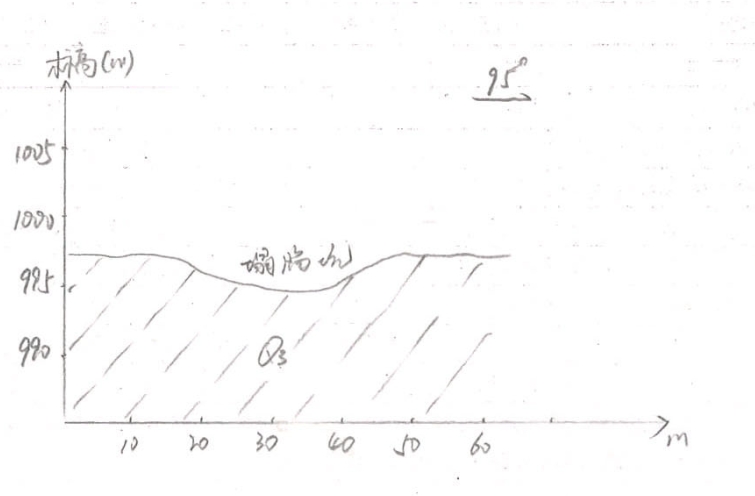 标高(m)
95°
1005
1000
塌陷坑
995
990
Q3
10 20 30 40 50 60 m